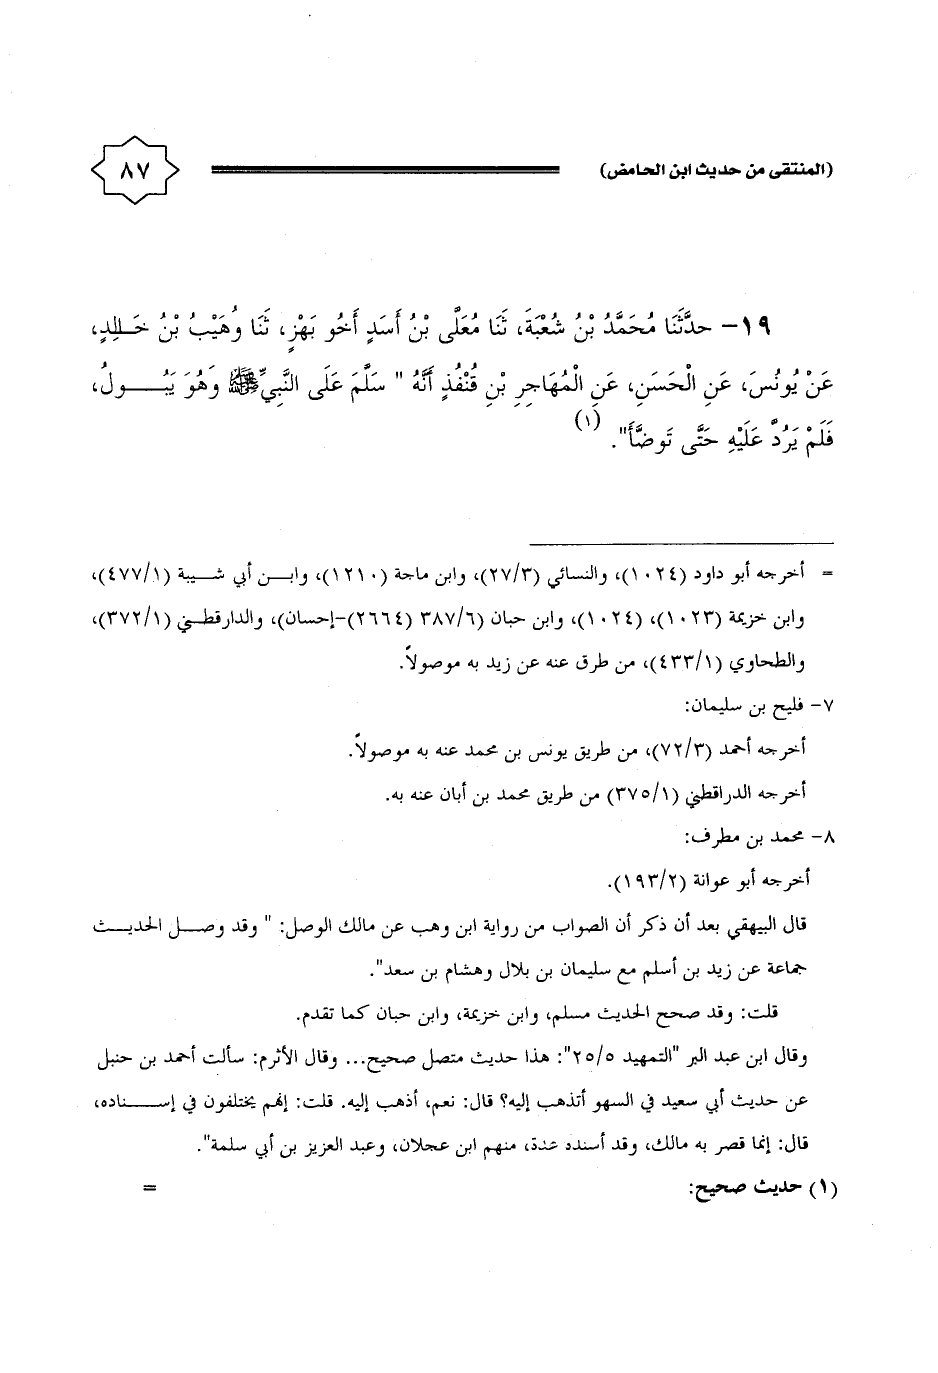 (المنتقى من حديث ابن الحامض)
٨٧
١٩- حدَّثَنَا مُحَمَّدُ بْنُ شُعْبَةَ، ثَنَا مُعَلَّى بْنُ أَسَدٍ أَخُو بَهْزٍ، ثَنَا وُهَيْبُ بْنُ خَالِدٍ،
عَنْ يُونُسَ، عَنِ الْحَسَنِ، عَنِ الْمُهَاجِرِ بْنِ قُنْفُذٍ أَنَّهُ " سَلَّمَ عَلَى النَّبِيِّ ﷺ وَهُوَ يَبُولُ،
فَلَمْ يَرُدَّ عَلَيْهِ حَتَّى تَوضَّأَ".(١)
= أخرجه أبو داود (١٠٢٤)، والنسائي (٢٧/٣)، وابن ماجة (١٢١٠)، وابن أبي شيبة (٤٧٧/١)،
وابن خزيمة (١٠٢٣)، (١٠٢٤)، وابن حبان (٣٨٧/٦ (٢٦٦٤)-إحسان)، والدارقطني (٣٧٢/١)،
والطحاوي (٤٣٣/١)، من طرق عنه عن زيد به موصولاً.
٧- فليح بن سليمان:
أخرجه أحمد (٧٢/٣)، من طريق يونس بن محمد عنه به موصولاً.
أخرجه الدراقطني (٣٧٥/١) من طريق محمد بن أبان عنه به.
٨- محمد بن مطرف:
أخرجه أبو عوانة (١٩٣/٢).
قال البيهقي بعد أن ذكر أن الصواب من رواية ابن وهب عن مالك الوصل: " وقد وصل الحديث
جماعة عن زيد بن أسلم مع سليمان بن بلال وهشام بن سعد".
قلت: وقد صحح الحديث مسلم، وابن خزيمة، وابن حبان كما تقدم.
وقال ابن عبد البر "التمهيد ٢٥/٥": هذا حديث متصل صحيح... وقال الأثرم: سألت أحمد بن حنبل
عن حديث أبي سعيد في السهو أتذهب إليه؟ قال: نعم، أذهب إليه. قلت: إنهم يختلفون في إسناده،
قال: إنما قصر به مالك، وقد أسنده عدة، منهم ابن عجلان، وعبد العزيز بن أبي سلمة".
(١) حديث صحيح: =